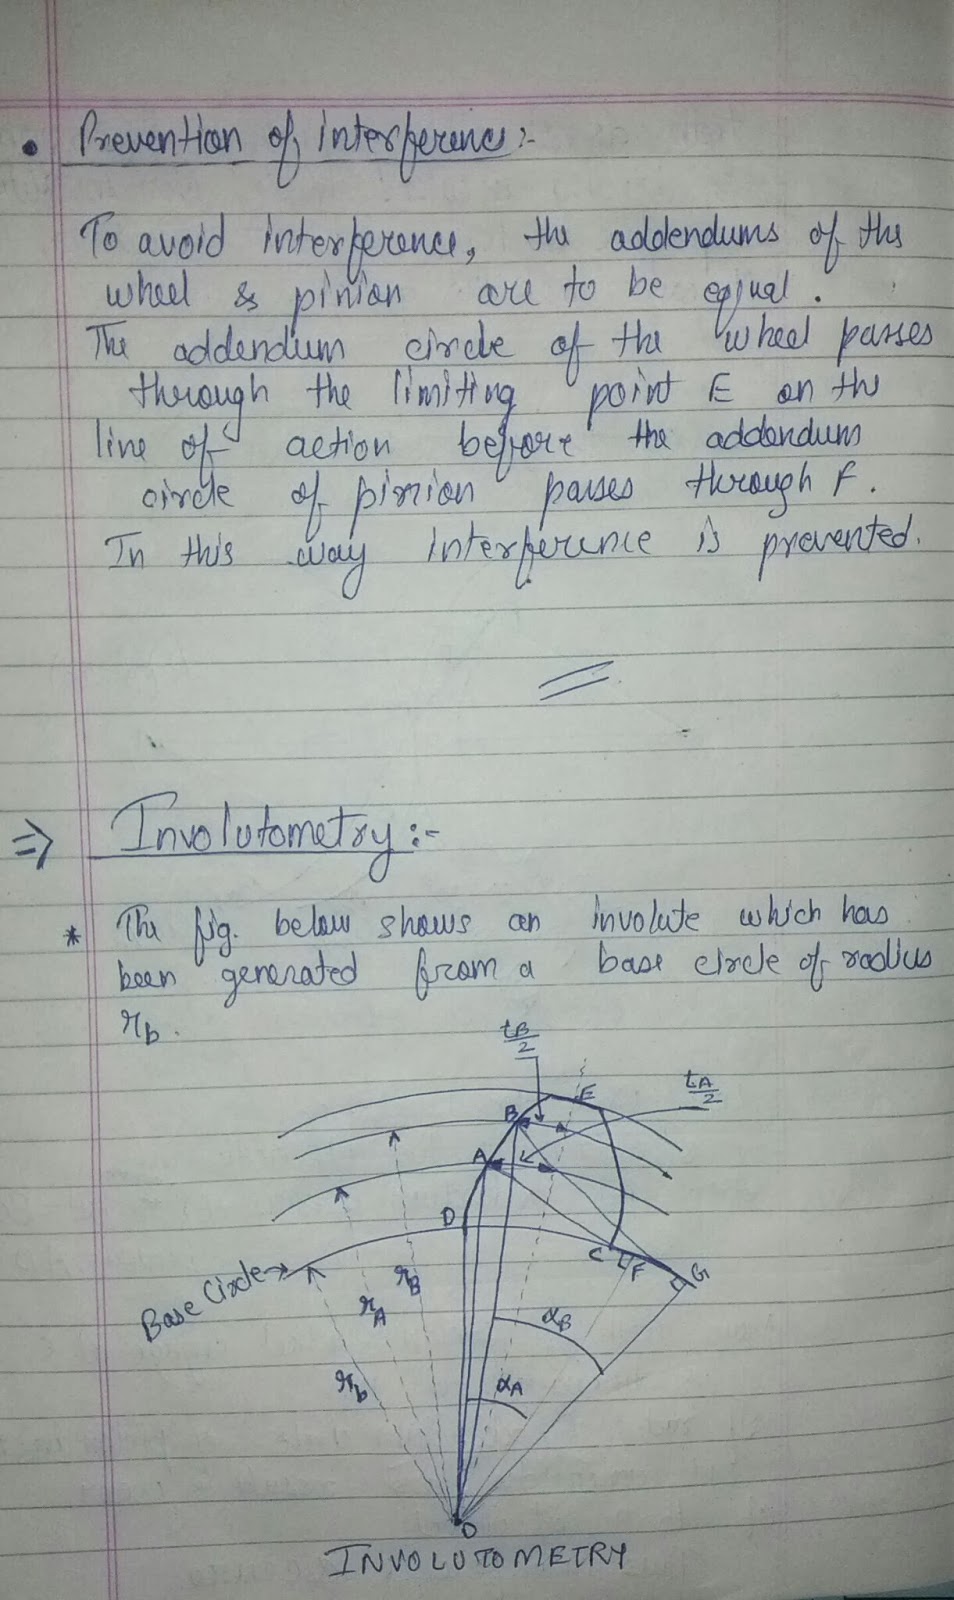 • Prevention of interference :-
To avoid interference, the addendums of the
wheel & pinion are to be equal.
The addendum circle of the wheel passes
through the limiting point E on the
line of action before the addendum
circle of pinion passes through F.
In this way interference is prevented.
⇒ Involutometry :-
* The fig. below shows an involute which has
been generated from a base circle of radius
rb.
tB/2
tA/2
E
B
A
D
C F G
Base Circle
rB
rA
rb
αB
αA
O
INVOLUTOMETRY